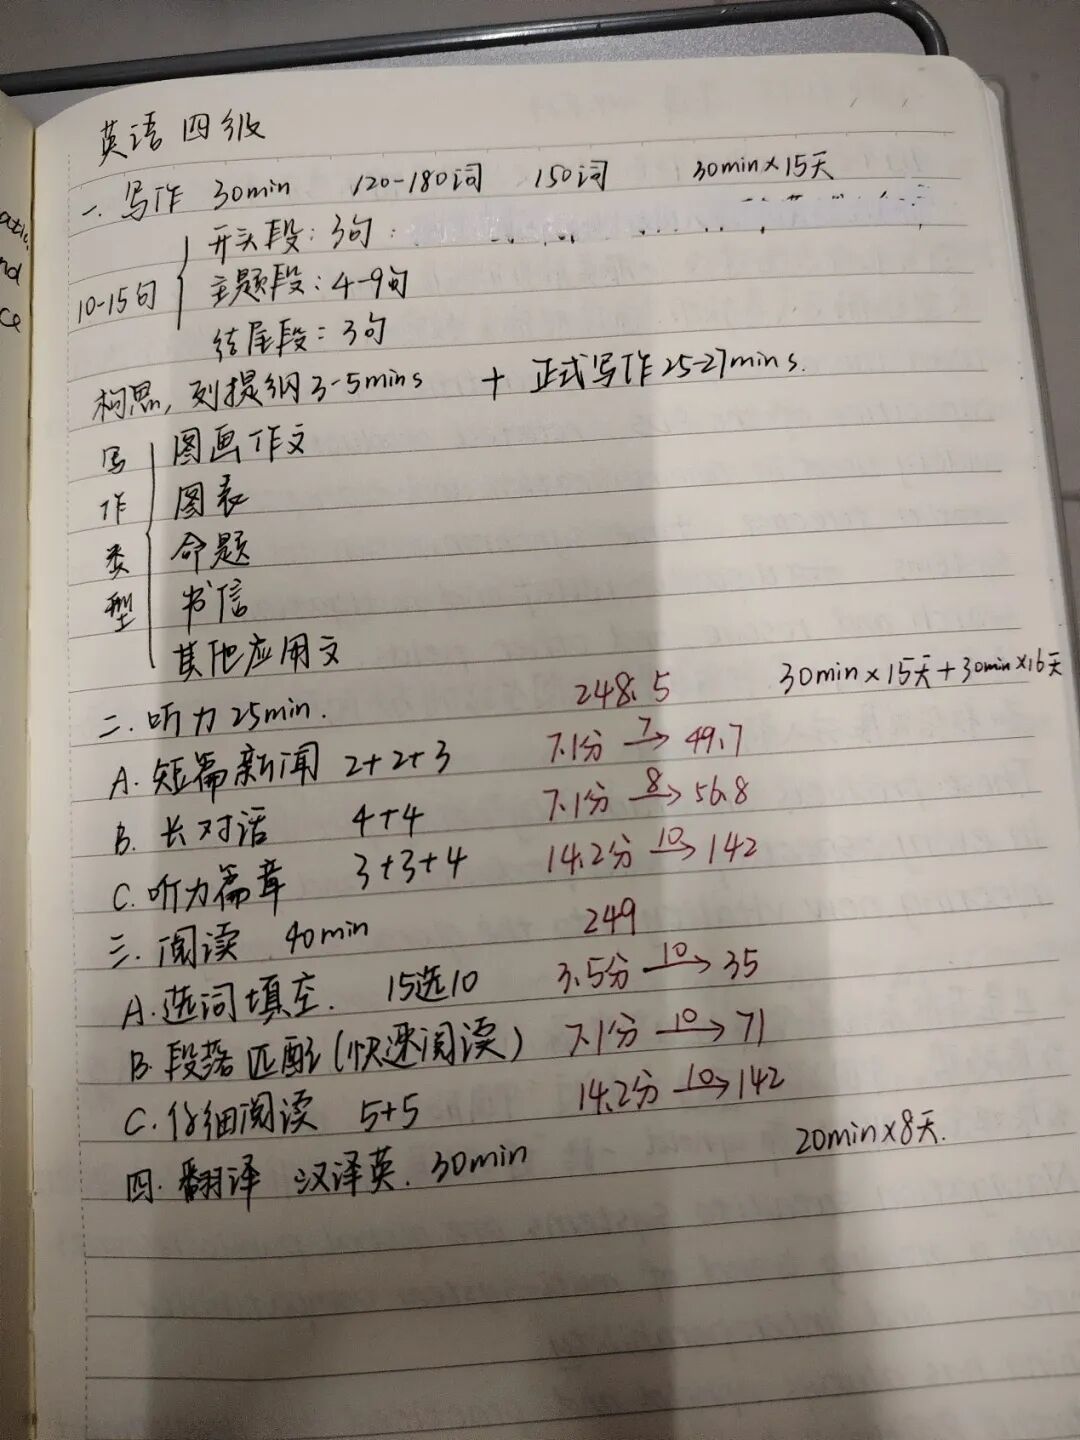 英语四级
一、写作 30min 120-180词 150词 30min×15天
开头段：3句
10-15句 主题段：4-9句
结尾段：3句
构思，列提纲3-5mins + 正式写作25-27mins.
写作类型
图画作文
图表
命题
书信
其他应用文
二、听力25min. 248.5 30min×15天+30min×16天
A. 短篇新闻 2+2+3 7.1分 7→ 49.7
B. 长对话 4+4 7.1分 8→ 56.8
C. 听力篇章 3+3+4 14.2分 10→ 142
三、阅读 40min 249
A. 选词填空. 15选10 3.5分 10→ 35
B. 段落匹配(快速阅读) 7.1分 10→ 71
C. 仔细阅读 5+5 14.2分 10→ 142
四. 翻译 汉译英. 30min 20min×8天.
nd
ce